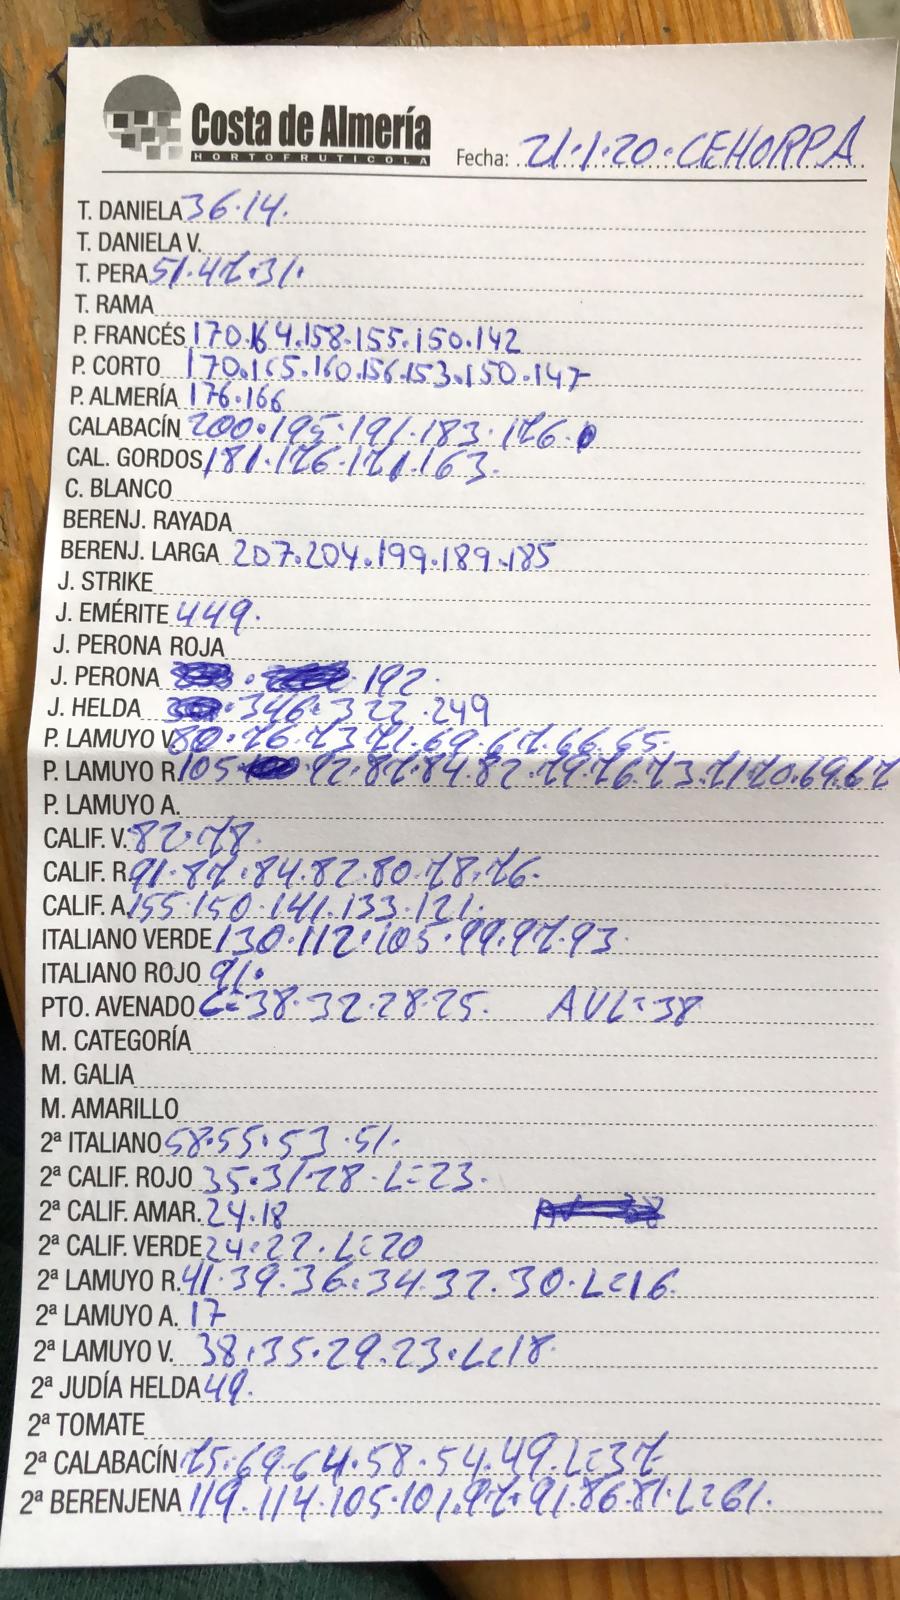 Costa de Almería
HORTOFRUTICOLA
Fecha: 21.1.20.CEHORPA
T. DANIELA 36.14.
T. DANIELA V.
T. PERA 51.47.31.
T. RAMA
P. FRANCÉS 170.164.158.155.150.142
P. CORTO 170.165.160.156.153.150.147
P. ALMERÍA 176.166
CALABACÍN 200.195.191.183.176.
CAL. GORDOS 181.176.171.163.
C. BLANCO
BERENJ. RAYADA
BERENJ. LARGA 207.204.199.189.185
J. STRIKE
J. EMÉRITE 449.
J. PERONA ROJA
J. PERONA 192.
J. HELDA 346.322.249
P. LAMUYO V. 80.76.73.71.69.67.66.65.
P. LAMUYO R. 105. 92.87.84.82.79.76.73.71.70.69.67
P. LAMUYO A.
CALIF. V. 82.78.
CALIF. R. 91.87.84.82.80.78.76.
CALIF. A. 155.150.141.133.121.
ITALIANO VERDE 130.112.105.99.97.93.
ITALIANO ROJO 91.
PTO. AVENADO C=38.32.28.25. AVL=38
M. CATEGORÍA
M. GALIA
M. AMARILLO
2ª ITALIANO 58.55.53.51.
2ª CALIF. ROJO 35.31.28.L=23.
2ª CALIF. AMAR. 24.18
2ª CALIF. VERDE 24.22.L=20
2ª LAMUYO R. 41.39.36.34.32.30.L=16.
2ª LAMUYO A. 17
2ª LAMUYO V. 38.35.29.23.L=18.
2ª JUDÍA HELDA 49.
2ª TOMATE
2ª CALABACÍN 75.69.64.58.54.49.L=37
2ª BERENJENA 119.114.105.101.97.91.86.81.L=61.